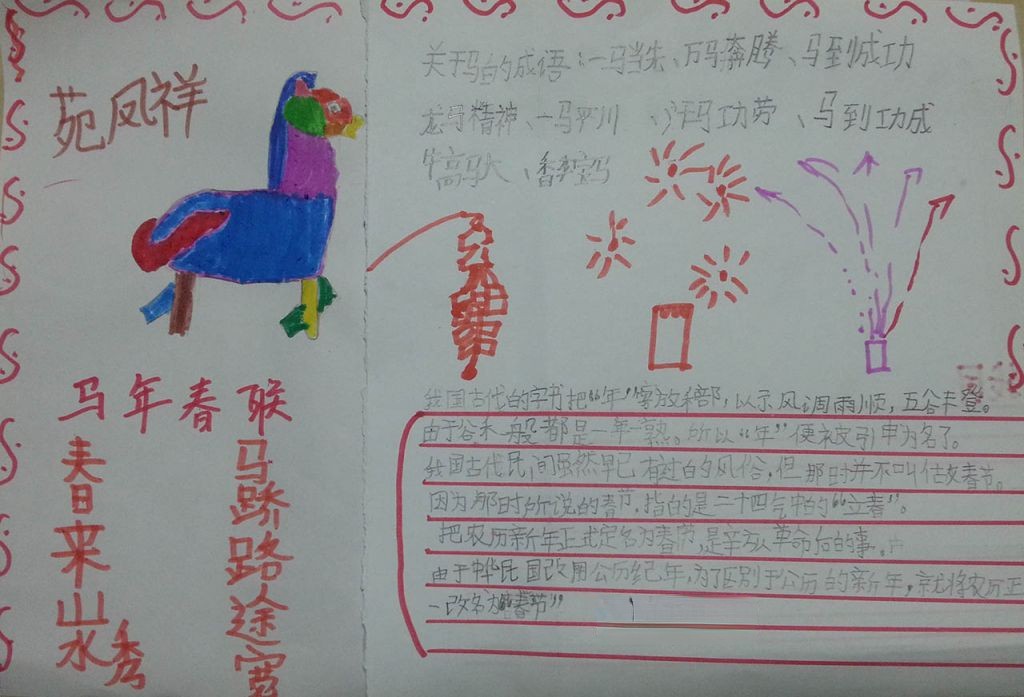 苑凤祥
马年春联
春来山水秀
马跻路途宽
关于马的成语:一马当先、万马奔腾、马到成功
龙马精神、一马平川、汗马功劳、马到功成
牛高马大、香车宝马
我国古代的字书把“年”字放禾部,以示风调雨顺,五谷丰登。
由于谷禾一般都是一年一熟。所以“年”便被引申为名了。
我国古代民间虽然早已有过的夕风俗,但那时并不叫估故春节。
因为那时所说的春节,指的是二十四气中的“立春”。
把农历新年正式定名为春节,是辛亥革命后的事。
由于中华民国改用公历纪年,为了区别于公历的新年,就将农历正
一改名为“春节”